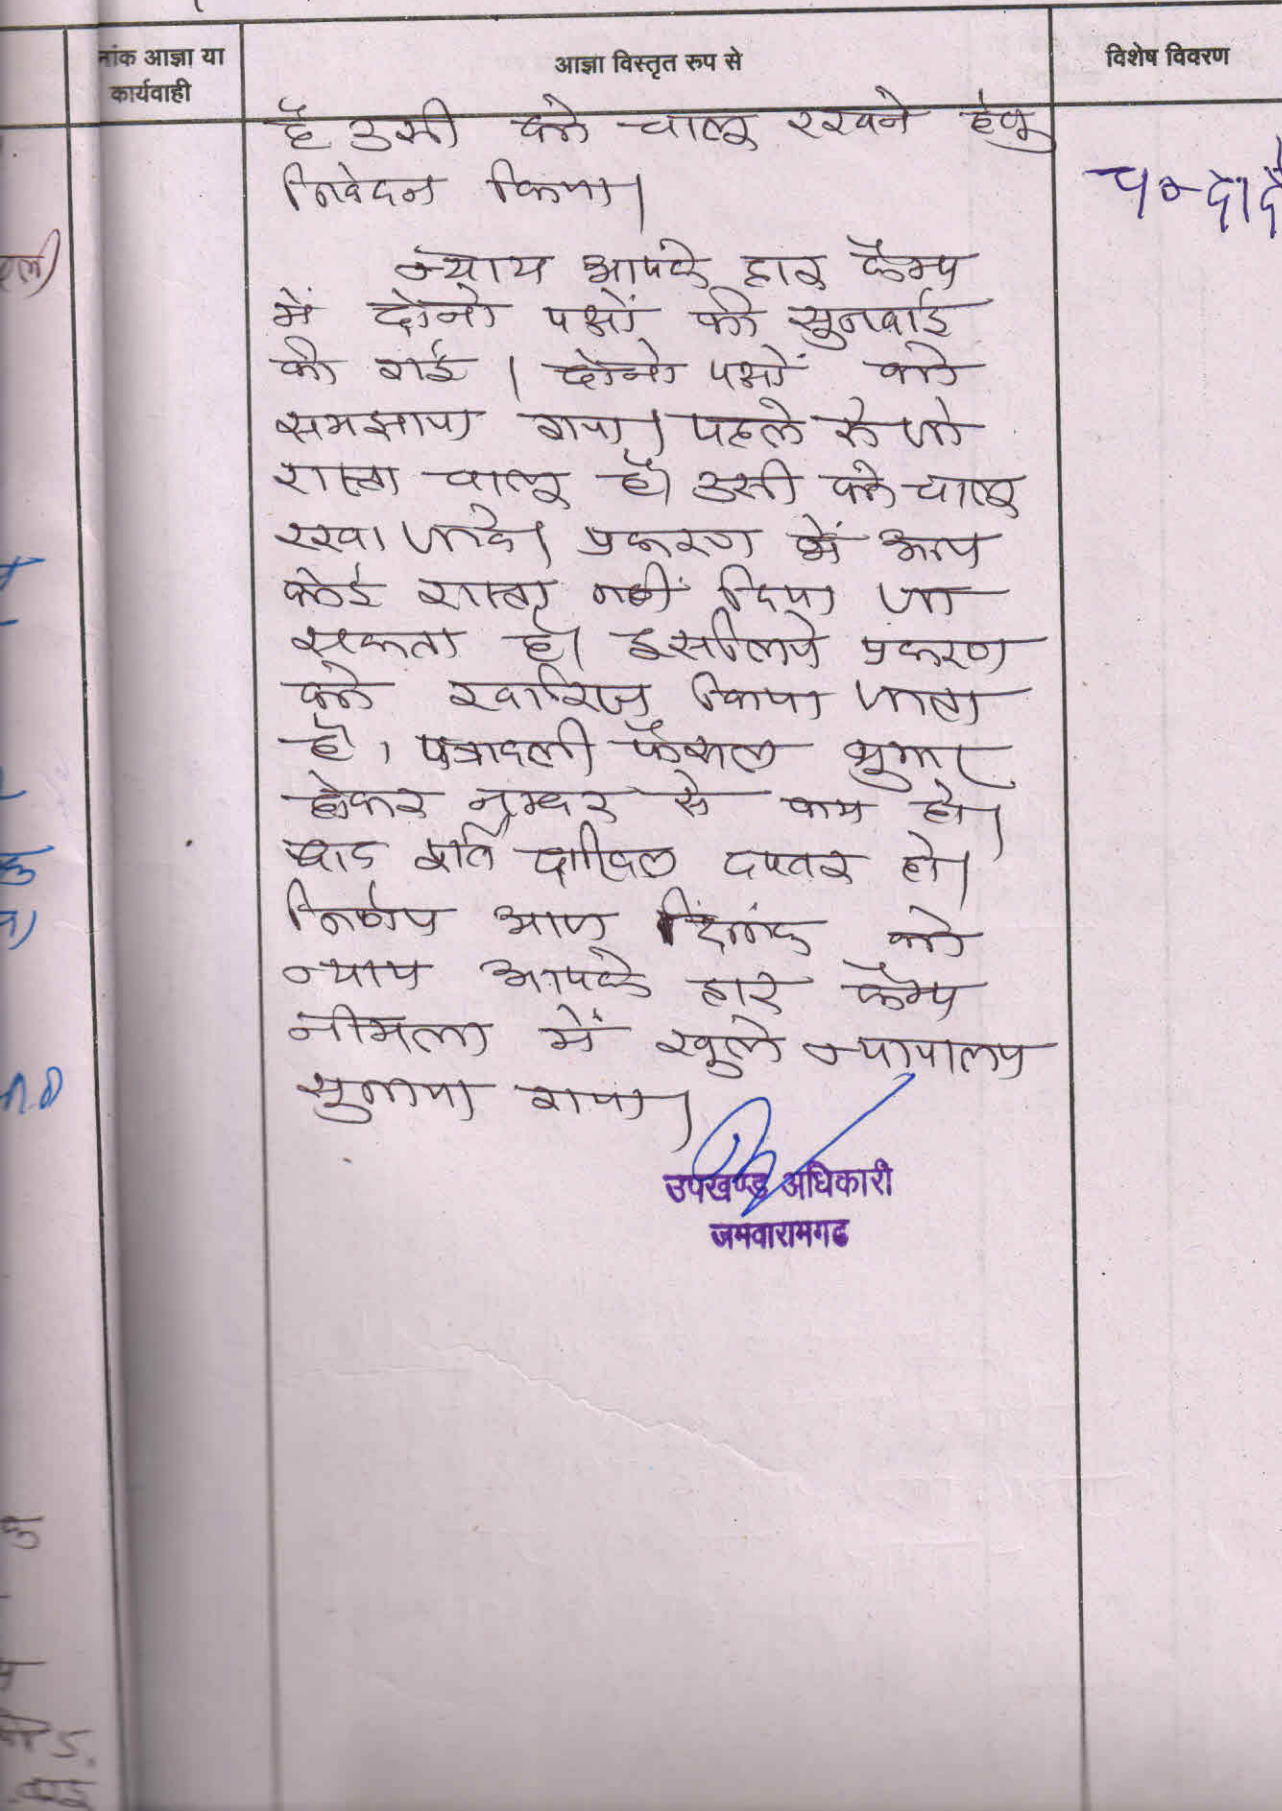 नांक आज्ञा या
कार्यवाही
आज्ञा विस्तृत रूप से
विशेष विवरण
है उसी को चालू रखने हेतु
निवेदन किया।
न्याय आपके द्वार कैम्प
में दोनो पक्षों की सुनवाई
की गई। दोनो पक्षों को
समझाया गया। पहले से जो
रास्ता चालू है। उसी को चालू
रखा जावे। प्रकरण में अन्य
कोई रास्ता नहीं दिया जा
सकता है। इसलिये प्रकरण
को खारिज किया जाता
है। पत्रावली फैसल शुमार
होकर नम्बर से कम हो।
बाद दाखिल दफ्तर हो।
निर्णय आज दिनांक को
न्याय आपके द्वार कैम्प
नीमला में खुले न्यायालय
सुनाया गया।
उपखण्ड अधिकारी
जमवारामगढ